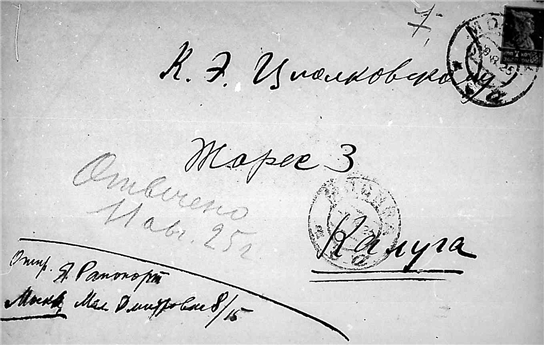 7,
МОСКВА
К. Э. Циолковскому
Жорес 3
Отвечено
11 авг. 25 г
МОСКВА
Калуга
Отпр. А Рапопорт
Москва, Мал Дмитровка 8/15